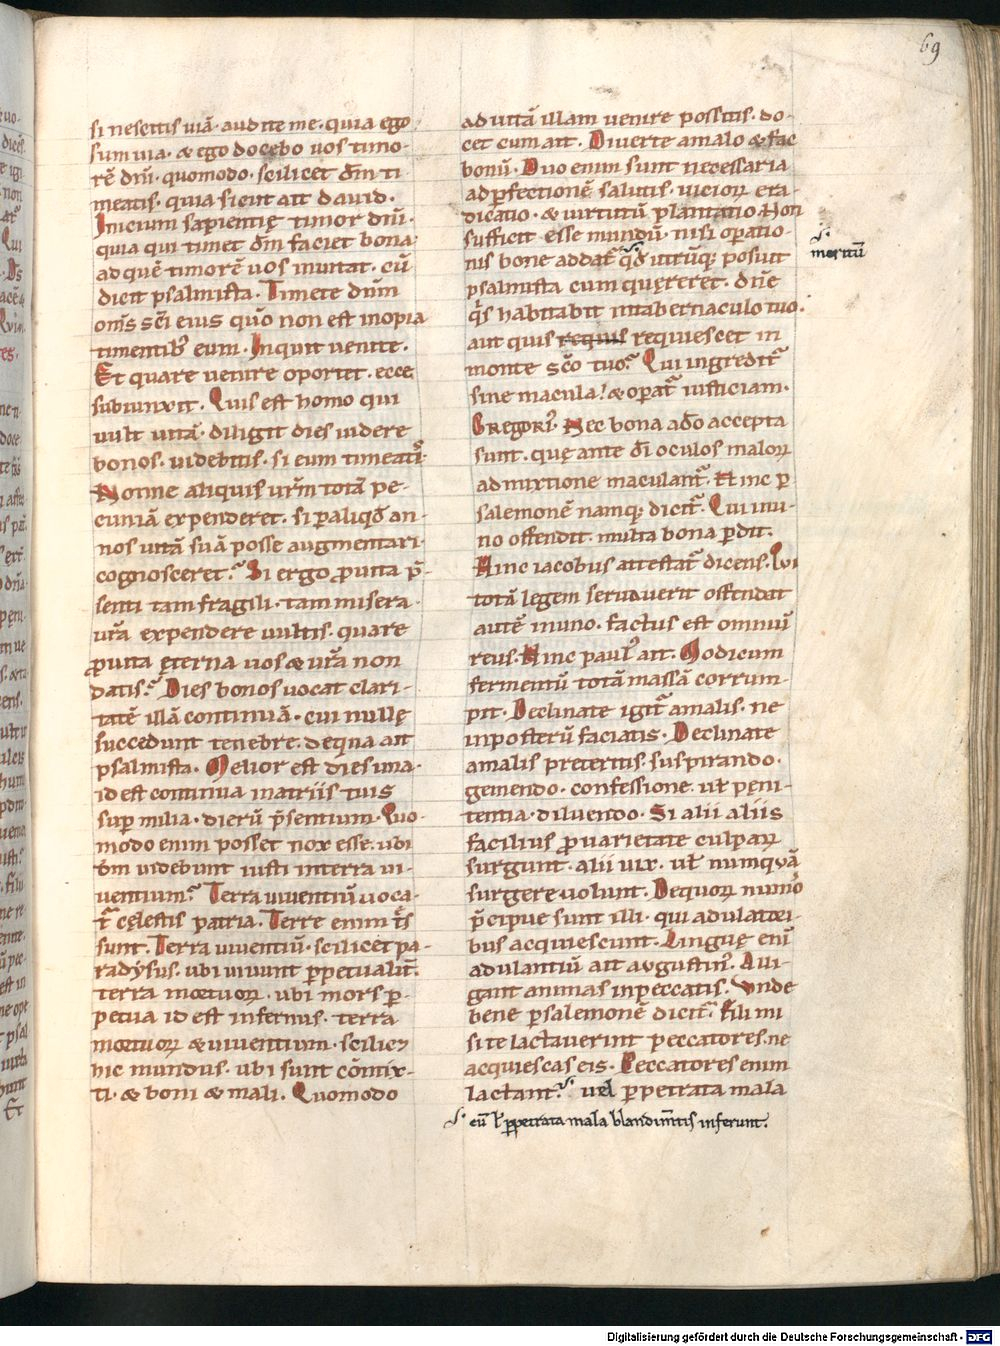 69
si nescitis uiã· audite me· quia ego
sum uia· & ego docebo uos timo-
rẽ dñi· quomodo· scilicet dñm ti-
meatis· quia sicut ait dauid·
Inicium sapientię timor dñi·
quia qui timet dñm faciet bona·
ad quẽ timorẽ uos inuitat· cũ
dicit psalmista· Timete dñm
oms sc̃i eius qũo non est inopia
timentib; eum· Inquit uenite·
Et quare uenire oportet· ecce
subiunxit· Quis est homo qui
uult uitã· diligit dies uidere
bonos· uidebitis· si eum timeatis·
Nonne aliquis ur̃m totã pe-
cuniã expenderet· si p aliqđ an-
nos uitã suã posse augmentari
cognosceret? Si ergo p uita p̃-
senti tam fragili· tam misera·
ur̃a expendere uultis· quare
p uita ęterna uos & ur̃a non
datis? Dies bonos uocat clari-
tatẽ illã continuã· cui nullę
succedunt tenebre· de qua ait
psalmista· Melior est dies una·
id est continua in atriis tuis
sup milia· dierũ p̃sentium· Quo-
modo enim posset nox esse· ubi
dm̃ uidebunt iusti in terra ui-
uentium? Terra uiuentiũ uoca-
t̃ cęlestis patria· Terre enim tres
sunt· Terra uiuentiũ· scilicet pa-
radysus· ubi uiuunt ppetualit̃·
terra mortuoꝝ· ubi mors p-
petua id est infernus· terra
mortuoꝝ & uiuentium· scilicet
hic mundus· ubi sunt cõmix-
ti· & boni & mali· Quomodo
ad uitã illam uenire possitis· do-
cet cum ait· Diuerte a malo & fac
bonũ· Duo enim sunt necessaria
ad pfectionẽ salutis· uicioꝝ era-
dicatio· & uirtutũ plantatio· Non
sufficit esse mundũ· nisi opatio-
nis bone addat̃ qđ utrũq; posuit
meritũ
psalmista cum quęreret· dñe
q̃s habitabit in tabernaculo tuo·
aut quis requis requiescet in
monte sc̃o tuo? Qui ingredit̃
sine macula! & opat̃ iusticiam·
Gregori᷒· Nec bona a do accepta
sunt· quę ante di oculos maloꝝ
admixtione maculant̃· Hinc p
salemonẽ namq; dicit̃· Qui in u-
no offendit· multa bona pdit·
Hinc iacobus attestat̃ dicens· Qui
totã legem seruauerit offendat
autẽ in uno· factus est omniũ
reus· Hinc paul᷒ ait· Modicum
fermentũ totã massã corrum-
pit· Declinate igit̃ a malis· ne
in posterũ faciatis· Declinate
a malis preteritis· suspirando·
gemendo· confessione· ul̃ pęni-
tentia· diluendo· Si alii aliis
facilius p uarietate culpaꝝ
surgunt· alii uix· ul̃ numquã
surgere uolunt· De quoꝝ numero
p̃cipue sunt illi· qui adulatori-
bus acquiescunt· Linguę eni
adulantiũ ait augustin᷒· Alli-
gant animas in peccatis· Vnde
bene p salemonẽ dicit̃· Fili mi
si te lactauerint peccatores· ne
acquiescas eis· Peccatores enim
lactant̃· uel ppetrata mala
cũ l̃ ppetrata mala blandim̃tis inferunt·
Digitalisierung gefördert durch die Deutsche Forschungsgemeinschaft - DFG